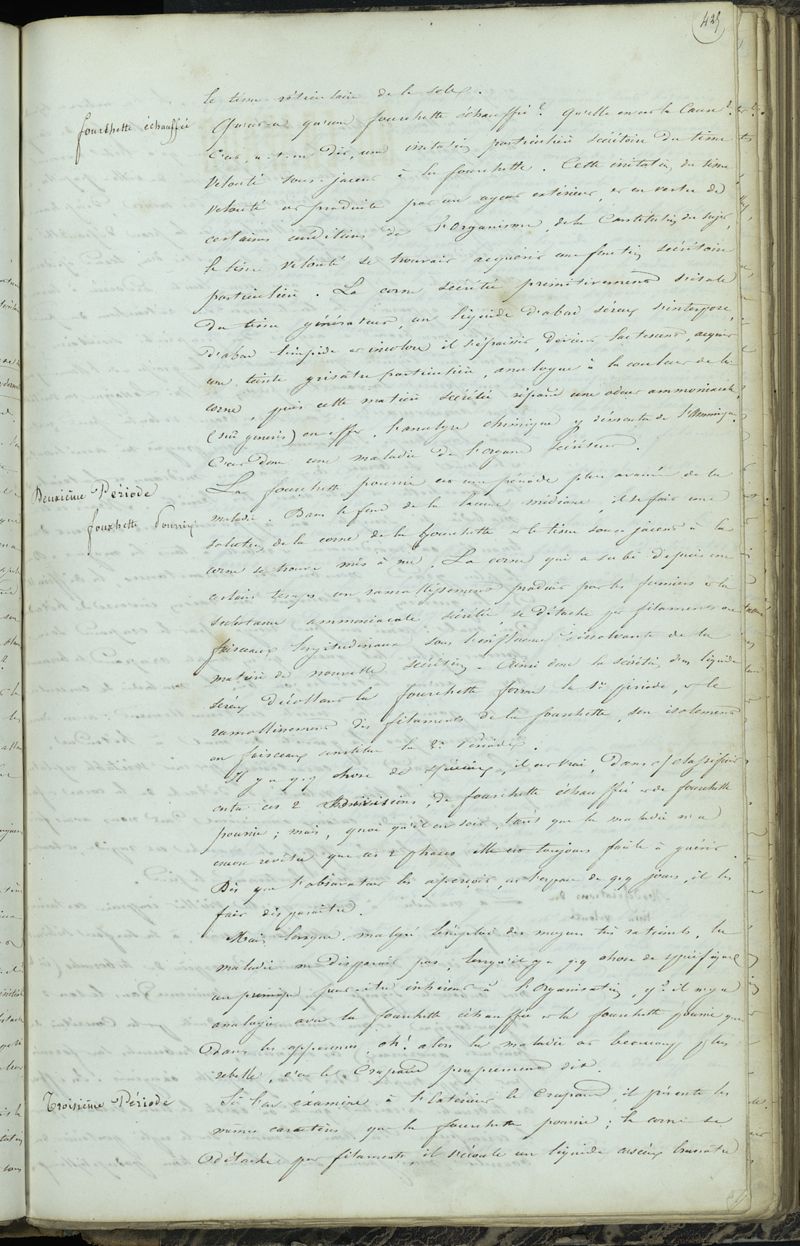 425
le tissu réticulaire de la sole.
fourchette échauffée
Qu'est-ce qu'une fourchette échauffée? Qu'elle en est la Cause?
C'est, a-t-on dit, une irritation particulière sécrétoire du tissu
velouté sous-jacent à la fourchette. Cette irritation du tissu
velouté est produite par un agent extérieur, et en vertu de
certaines conditions de l'organisme, de la Constitution du sujet,
le tissu velouté se trouvait acquérir une fonction sécrétoire
particulière. La corne sécrétée primitivement s'isole
du tissu générateur, un liquide d'abord séreux s'interpose,
d'abord limpide et incolore il s'épaissit, devient lactescent, acquiert
une teinte grisâtre particulière, analogue à la couleur de la
corne, puis cette matière sécrétée répand une odeur ammoniacale
(sui generis) en effet, l'analyse chimique y démontre de l'Ammoniaque.
C'est donc une maladie de l'organe sécréteur.
Deuxième Période
fourchette Pourrie
La fourchette pourrie est une période plus avancée de la
maladie. Dans le fond de la lacune médiane, il se fait une
solution de la corne de la fourchette et le tissu sous-jacent à la
corne se trouve mis à nu. La corne qui a subi depuis un
certain temps un ramollissement produit par les fumiers et la
substance ammoniacale sécrétée, se détache par filaments ou
faisceaux longitudinaux sous l'influence dissolvante de la
matière de nouvelle sécrétion. Ainsi donc la sécrétion d'un liquide
séreux décollant la fourchette forme la 1re période, et le
ramollissement des filaments de la fourchette, son isolement
en faisceaux constitue la 2e Période.
Il y a qq chose de spécieux, il est vrai, dans cette classification
entre ces 2 divisions, de fourchette échauffée et de fourchette
pourrie; mais, quoi qu'il en soit, tant que la maladie n'a
encore revêtu que ces 2 phases elle est toujours facile à guérir.
Dès que l'observateur les aperçoit, en l'espace de qq jours, il les
fait disparaître.
Mais, lorsque, malgré l'emploi des moyens très rationels, la
maladie ne disparait pas, lorsqu'il y a qq chose de spécifique
un principe peut-être inhérent à l'organisation, qd il n'y a
analogie avec la fourchette échauffée et la fourchette pourrie que
dans les apparences, oh! alors la maladie est beaucoup plus
rebelle, c'est le Crapaud proprement dit.
Troisième Période
Si l'on examine à l'extérieur le Crapaud, il présente les
mêmes caractères que la fourchette pourrie; la corne se
détache par filaments, il s'écoule un liquide séreux brunâtre